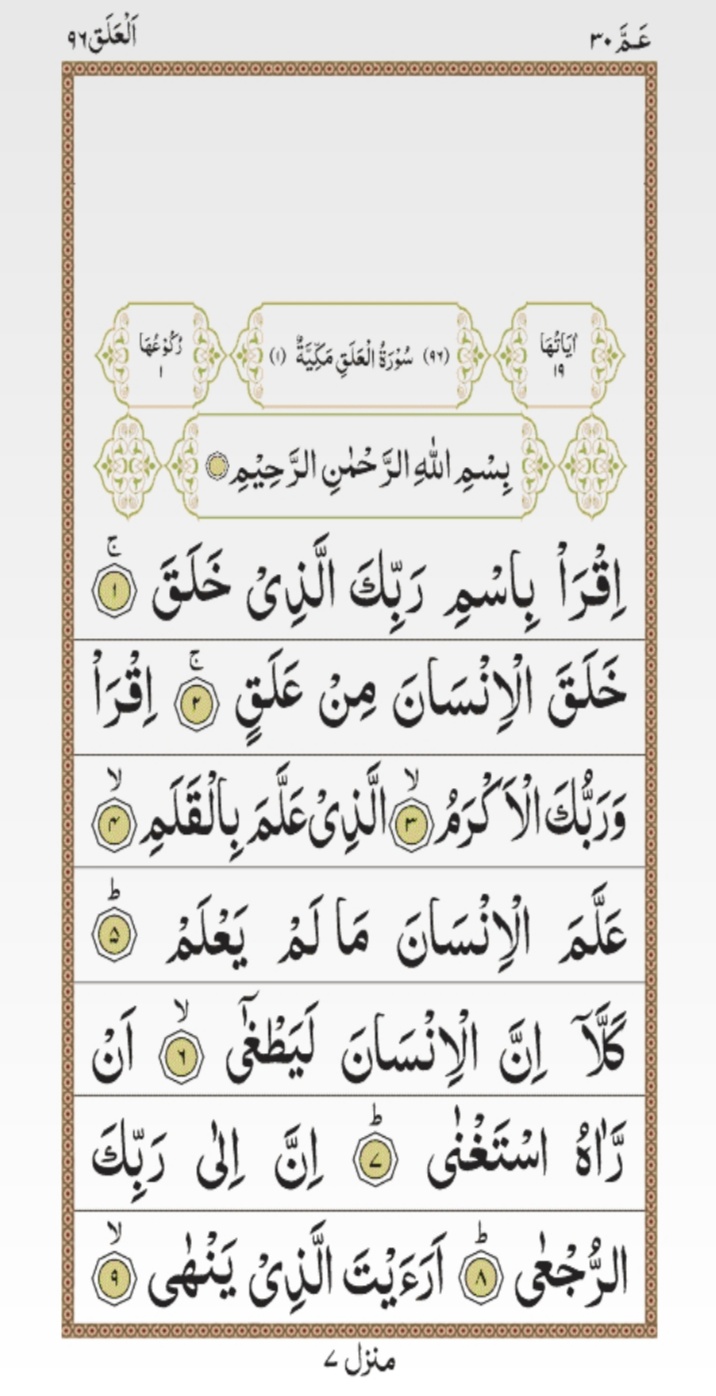 عَمَّ ٣٠ اَلْعَلَق ٩٦
اٰيَاتُهَا ١٩ (٩٦) سُوْرَةُ الْعَلَقِ مَكِّيَّةٌ (١) رُكُوْعُهَا ١
بِسْمِ اللّٰهِ الرَّحْمٰنِ الرَّحِيْمِ
اِقْرَاْ بِاسْمِ رَبِّكَ الَّذِىْ خَلَقَ ۚ ١
خَلَقَ الْاِنْسَانَ مِنْ عَلَقٍ ۚ ٢ اِقْرَاْ
وَرَبُّكَ الْاَكْرَمُ ۙ ٣ الَّذِىْ عَلَّمَ بِالْقَلَمِ ۙ ۴
عَلَّمَ الْاِنْسَانَ مَا لَمْ يَعْلَمْ ؕ ۵
كَلَّاۤ اِنَّ الْاِنْسَانَ لَيَطْغٰٓى ۙ ۶ اَنْ
رَّاٰهُ اسْتَغْنٰى ؕ ٧ اِنَّ اِلٰى رَبِّكَ
الرُّجْعٰى ؕ ٨ اَرَءَيْتَ الَّذِىْ يَنْهٰى ۙ ٩
منزل ٧